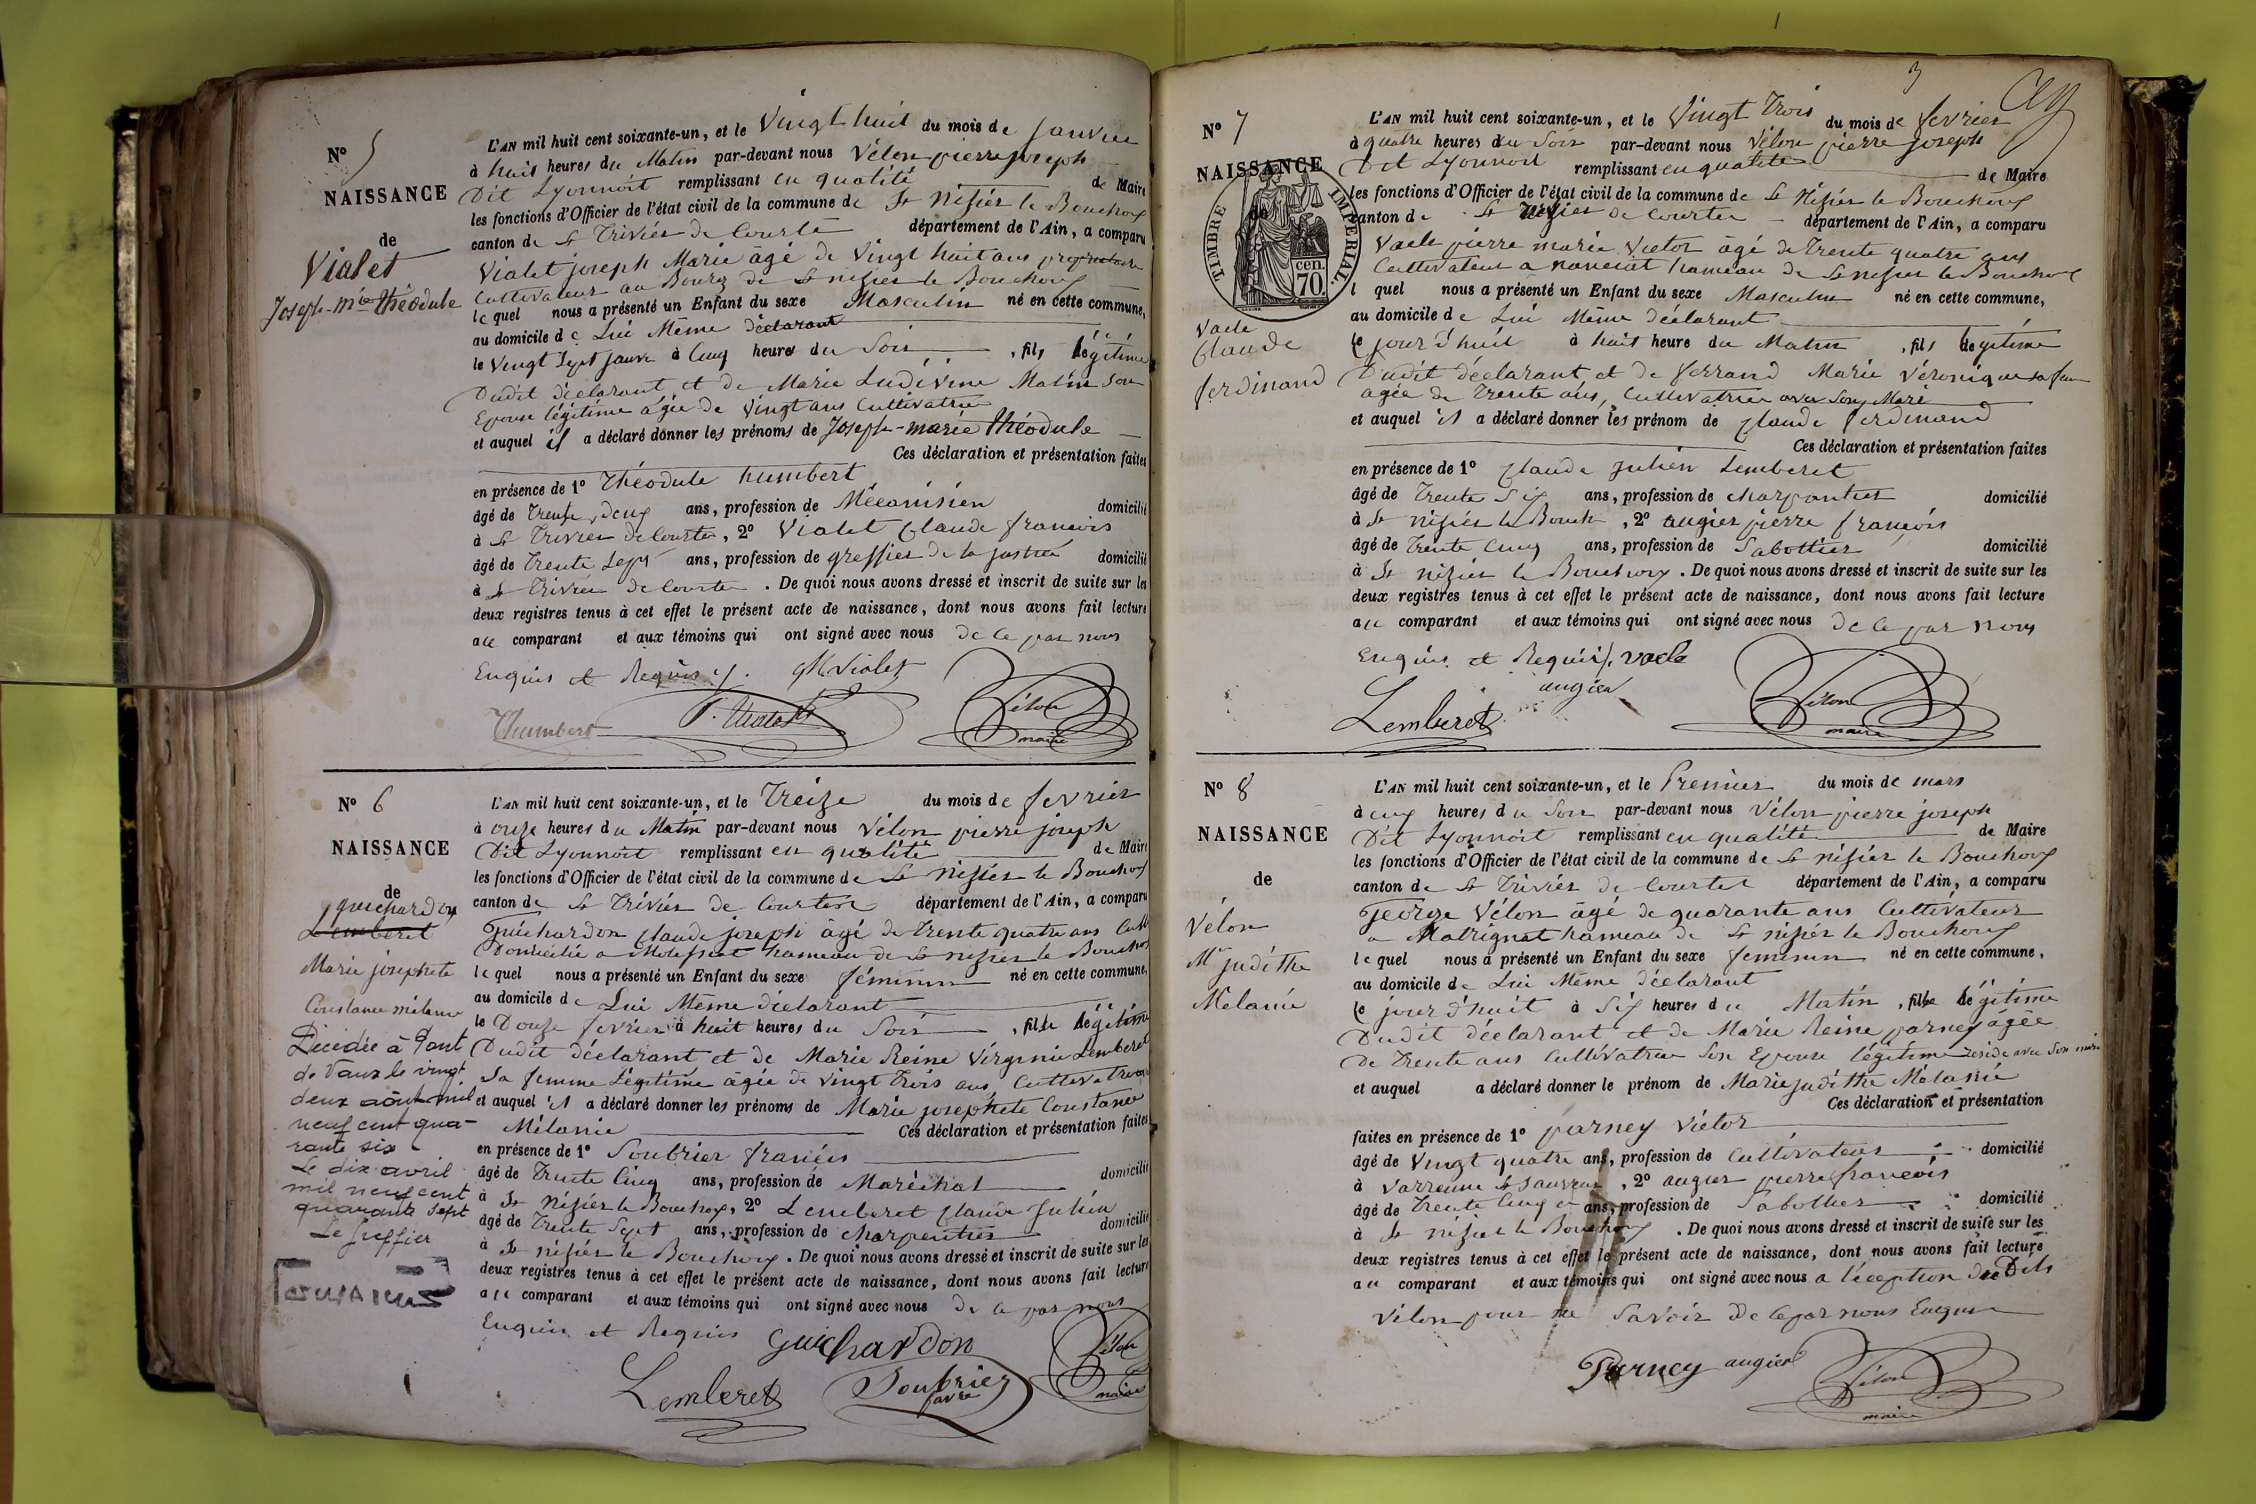 N° 5
NAISSANCE
de
Vialet
Joseph-Mie théodule
L'AN mil huit cent soixante-un, et le Vingt huit du mois de janvier
à huit heures du Matin par-devant nous Vélon pierre joseph
Dit Lyonnoit remplissant en qualité de Maire
les fonctions d'Officier de l'état civil de la commune de St Nisier le Bouchoux
canton de St Triviér de Courte département de l'Ain, a comparu
Vialet joseph Marie âgé de Vingt huit ans propriétaire
Cultivateur au Bourg de St nisier le Bouchoux
lequel nous a présenté un Enfant du sexe Masculin né en cette commune,
au domicile de Lui Même déclarant
le Vingt Sept janvr à Cinq heures du Soir, fils légitime
Dudit déclarant et de Marie Ludivine Matin Son
Epouse légitime âgée de Vingt ans Cultivatrice
et auquel il a déclaré donner les prénoms de Joseph-marie théodule
Ces déclaration et présentation faites
en présence de 1° Théodule humbert
âgé de Trente deux ans, profession de Mécanisien domicilié
à St Trivier de Courte, 2° Vialet Claude francois
âgé de Trente Sept ans, profession de greffier de la justice domicilié
à St Trivier de Courte. De quoi nous avons dressé et inscrit de suite sur les
deux registres tenus à cet effet le présent acte de naissance, dont nous avons fait lecture
au comparant et aux témoins qui ont signé avec nous de ce par nous
Enquis et Requis /. JM Vialet
Thumbert Vialet Vélon
maire
N° 6
NAISSANCE
de
guichardon
Lemberet
Marie josephete
Constance mélanie
Décédée à Pont
de Vaux le vingt
deux août mil
neuf cent qua-
rante six
Le dix avril
mil neuf cent
quarante sept
Le Greffier
L'AN mil huit cent soixante-un, et le Treize du mois de fevrier
à onze heures du Matin par-devant nous Vélon pierre joseph
Dit Lyonnoit remplissant en qualité de Maire
les fonctions d'Officier de l'état civil de la commune de St Nisier le Bouchoux
canton de St Triviér de Courte département de l'Ain, a comparu
Guichardon Claude joseph âgé de Trente quatre ans Cult
Domicilié a hameau de St nisier le Bouchoux
lequel nous a présenté un Enfant du sexe féminin né en cette commune,
au domicile de Lui Même déclarant
le Douze fevrier à huit heures du Soir, fille légitime
Dudit déclarant et de Marie Reine Virginie Lemberet
Sa femme Légitime âgée de Vingt Trois ans, Cultivatrice
et auquel il a déclaré donner les prénoms de Marie josephete Constance
Mélanie Ces déclaration et présentation faites
en présence de 1° Soubrier francois
âgé de Trente Cinq ans, profession de Maréchal domicilié
à St Nisier le Bouchoux, 2° Lemberet Claude Julien
âgé de Trente Sept ans, profession de charpentier domicilié
à St nisier le Bouchoux. De quoi nous avons dressé et inscrit de suite sur les
deux registres tenus à cet effet le présent acte de naissance, dont nous avons fait lecture
au comparant et aux témoins qui ont signé avec nous de ce par nous
Enquis et Requis Guichardon
Lemberet Soubrier Vélon
maire
3
N° 7
NAISSANCE
de
TIMBRE IMPERIAL.
cen.
70.
Vacle
Claude
ferdinand
L'AN mil huit cent soixante-un, et le Vingt Trois du mois de fevrier
à quatre heures du Soir par-devant nous Vélon pierre joseph
Dit Lyonnoit remplissant en qualité de Maire
les fonctions d'Officier de l'état civil de la commune de St Nisier le Bouchoux
canton de St de Courte département de l'Ain, a comparu
Vacle pierre marie Victor âgé de Trente quatre ans
Cultivateur a hameau de St nisier le Bouchoux
l quel nous a présenté un Enfant du sexe Masculin né en cette commune,
au domicile de Lui Même déclarant
le jour d'huit à huit heure du Matin, fils légitime
Dudit déclarant et de ferrand Marie Véronique sa fem
âgée de Trente ans, Cultivatrice avec Son Mari
et auquel il a déclaré donner les prénom de Claude ferdinand
Ces déclaration et présentation faites
en présence de 1° Claude Julien Lemberet
âgé de Trente Six ans, profession de charpentier domicilié
à St nisier le Bouch, 2° augier pierre françois
âgé de Trente Cinq ans, profession de Sabottier domicilié
à St nisier le Bouchoux. De quoi nous avons dressé et inscrit de suite sur les
deux registres tenus à cet effet le présent acte de naissance, dont nous avons fait lecture
au comparant et aux témoins qui ont signé avec nous de ce par nous
Enquis et Requis /. Vacle
augier
Lemberet Vélon
maire
N° 8
NAISSANCE
de
Vélon
Mie judithe
Mélanie
L'AN mil huit cent soixante-un, et le Premier du mois de mars
à cinq heures du Soir par-devant nous Vélon pierre joseph
Dit Lyonnoit remplissant en qualité de Maire
les fonctions d'Officier de l'état civil de la commune de St nisier le Bouchoux
canton de St Triviér de Courte département de l'Ain, a comparu
George Vélon âgé de quarante ans Cultivateur
a Matrignat hameau de St nisier le Bouchoux
lequel nous a présenté un Enfant du sexe feminin né en cette commune,
au domicile de Lui Même déclarant
le jour d'huit à Six heures du Matin, fille légitime
Dudit déclarant et de Marie Reine parney âgée
De Trente ans Cultivatrice Son Epouse légitime reside avec Son mari
et auquel a déclaré donner le prénom de Marie judithe Mélanie
Ces déclaration et présentation
faites en présence de 1° parney Victor
âgé de Vingt quatre ans, profession de Cultivateur domicilié
à Varrenne St Sauveur, 2° augier pierre francois
âgé de Trente Cinq ans, profession de Sabottier domicilié
à St nisier le Bouchoux. De quoi nous avons dressé et inscrit de suite sur les
deux registres tenus à cet effet le présent acte de naissance, dont nous avons fait lecture
au comparant et aux témoins qui ont signé avec nous a l'éception du Dit
Vélon pour ne Savoir De ce par nous Enquis
Parney augier Vélon
maire